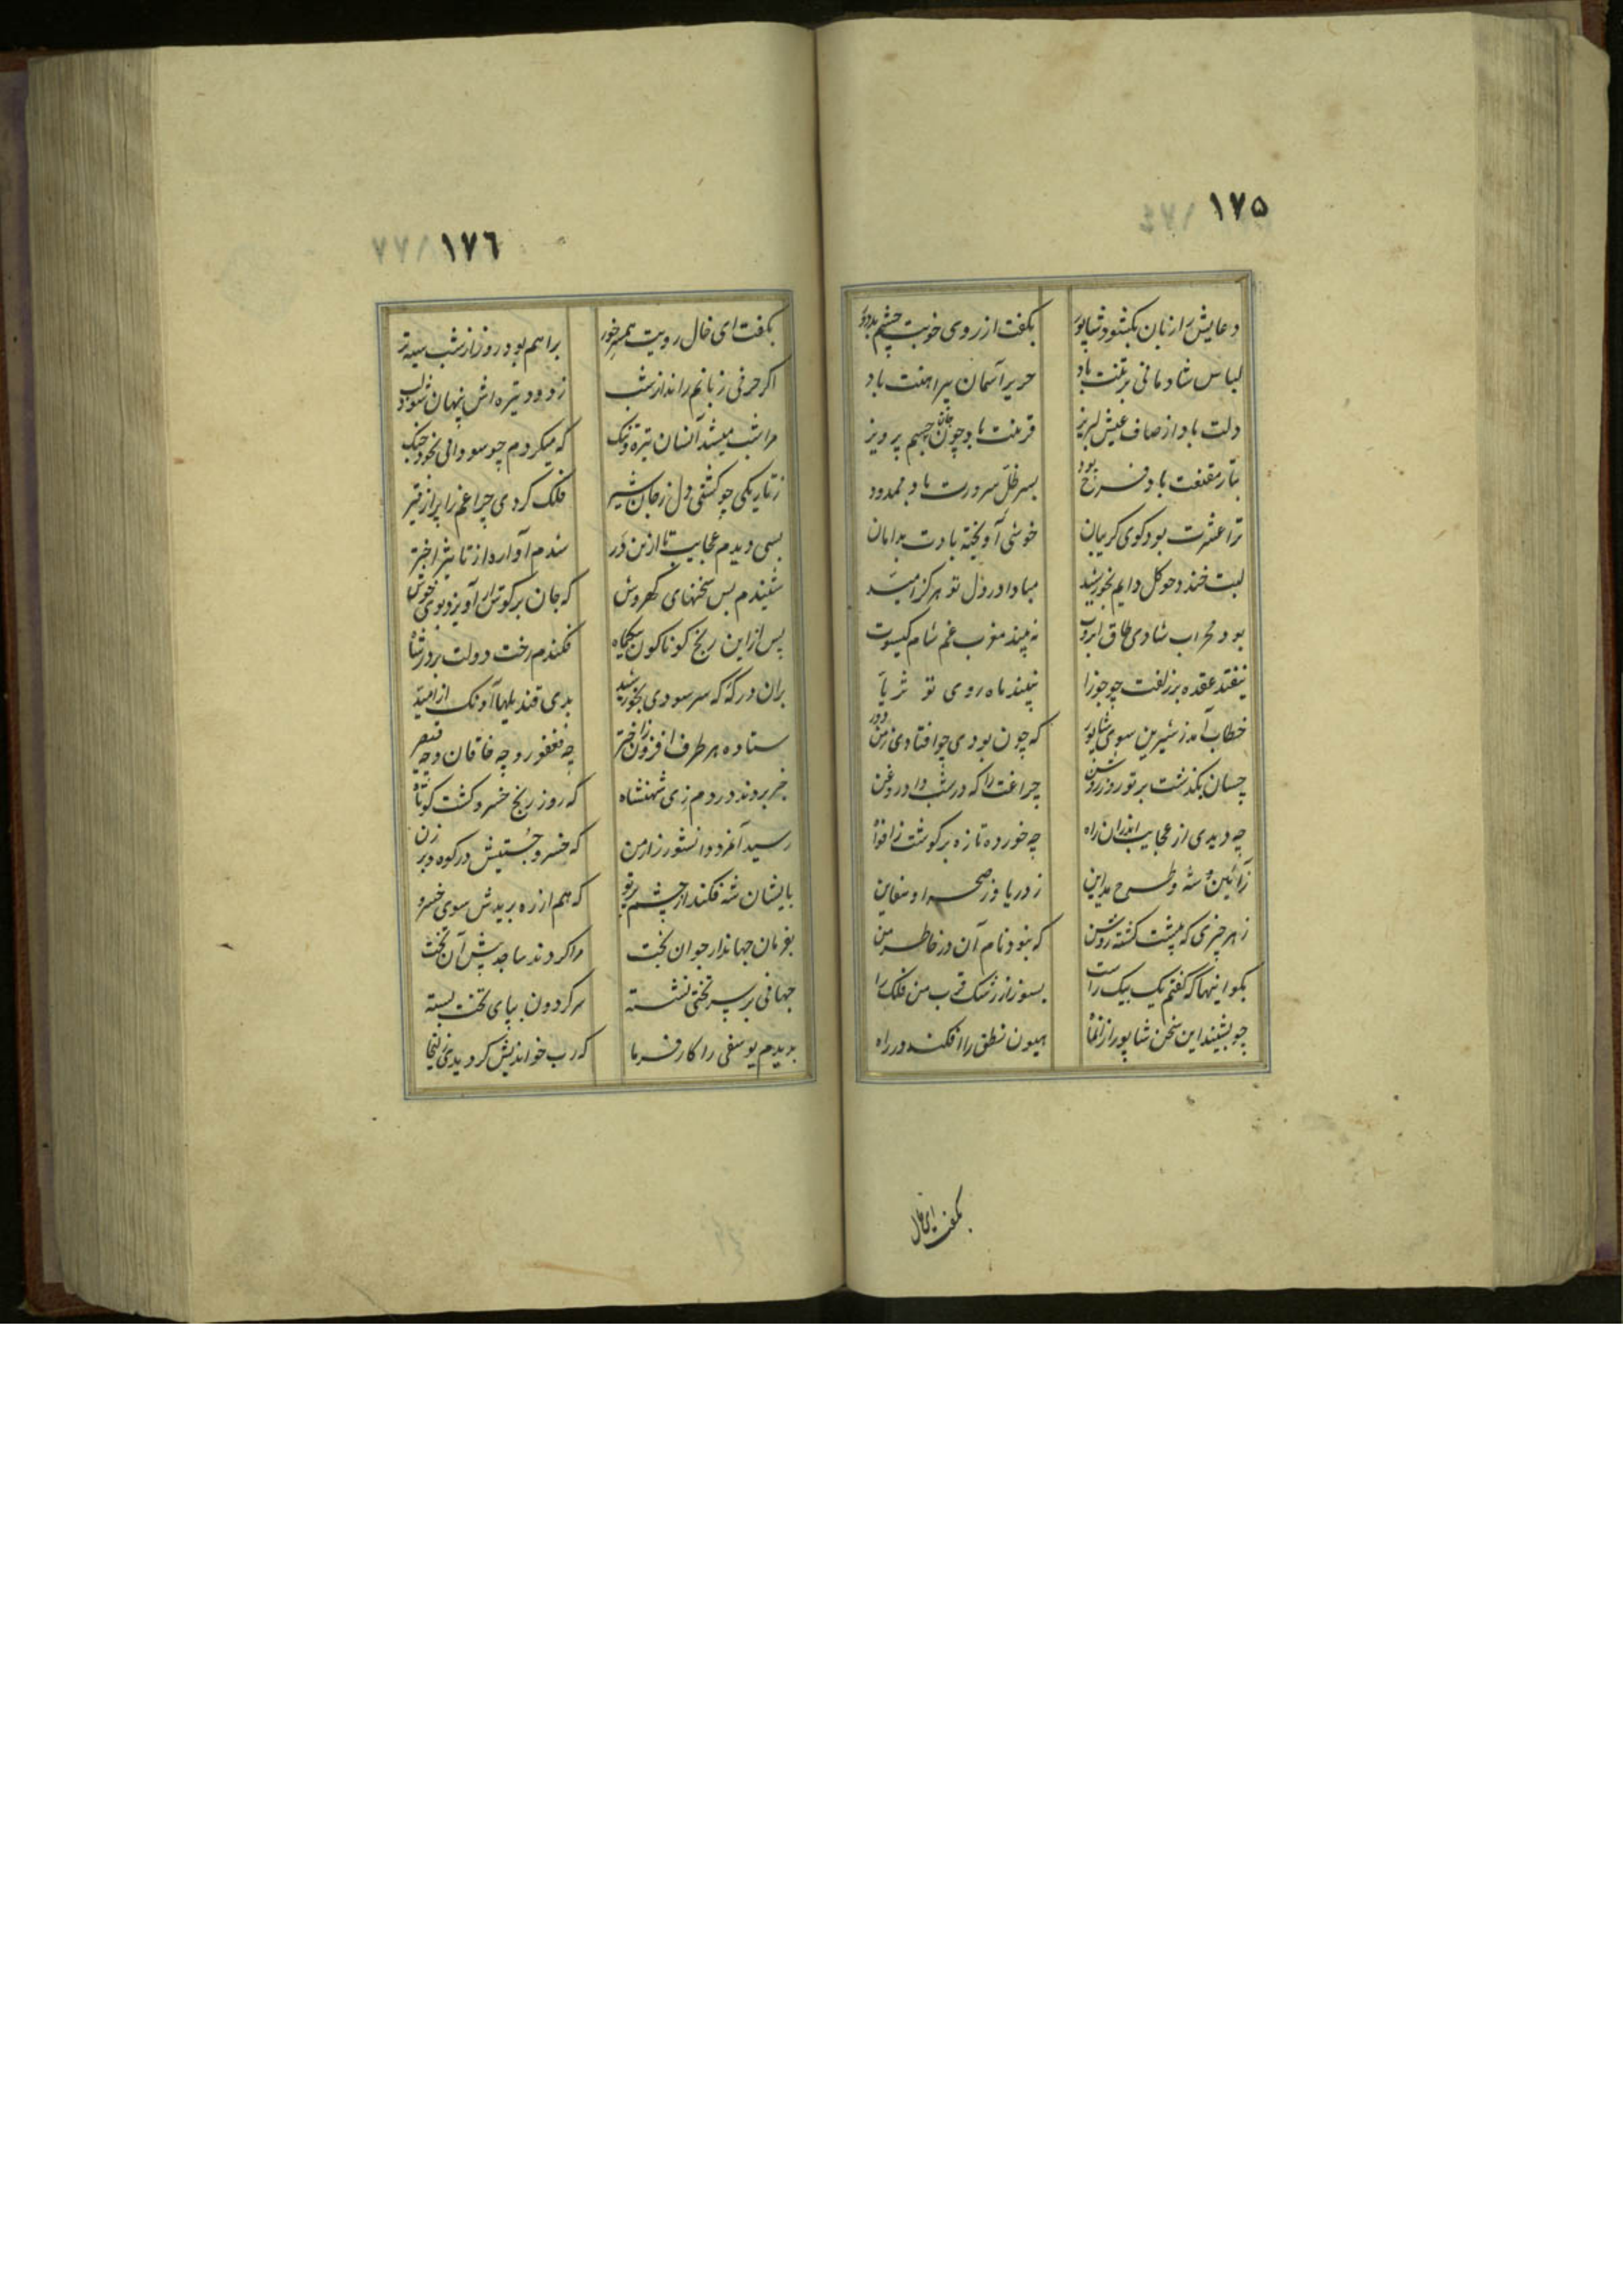 ١٧٥
دعایش را زبان بگشود شاپور بگفت از روی خوبت چشم بد دور
لباس شادمانی بر تنت باد حریر آسمان پیراهنت باد
دلت باد از صاف عیش لبریز قرینت باد چون جان جسم پرویز
بتار مقنعت باد فرخ بود بسر ظل سرورت باد ممدود
ترا عشرت بود کوی کریبان خوشی آویخته بادت بدامان
لبت خندد چو کل دایم بخورشید مبادا در دل تو هرکز امید
بود محراب شادی طاق ابروت نه بیند مغرب غم شام کیسوت
نیفتد عقده بر زلفت چو جوزا نبیند ماه روی تو ثریا
خطاب آمد ز شیرین سوی شاپور که چون بودی چو افتادی ز من دور
چسان بگذشت بر تو روز روشن چراغت را که در شب داد روغن
چه دیدی از عجایب اندران راه چه خورده تازه بر کوشت ز افواه
ز آئین شه و طرح مداین ز دریا و ز صحرا و سفاین
ز هر چیزی که پیشت کشته روشن که بنود نام آن در خاطر من
بکو اینها که کفتم یک بیک راست بسوزان ز رشک قرب من فلک را
چو بشنید این سخن شاپور از آنماه هیون نطق را افکند در راه
بگفت ای خال
١٧٦
بگفت ای خال رویت همسر خور براهم بود روز از شب سیه تر
اکر حرفی زبانم راند از شب ز دود تیره اش پنهان شود لب
مرا شب میشد آنسان تیره و تنک که میکردم چو سودائی بخود جنک
ز تاریکی چو کشتی دل ز جان سیر فلک کردی چراغم را پر از قیر
بسی دیدم عجایب تا ازین در شدم آواره از تاثیر اختر
شنیدم بس سخنهای کهروش که جان بر کوش آویزد بوی خوش
پس از این رنج کوناکون بیکماه فکندم رخت دولت بر در شاه
بران درکه که سر سودی بخورشید بدی قندیلها آونک از امید
ستاده هر طرف افزون ز اختر چه فغفور و چه خاقان و چه قیصر
خبر بردند در دم زی شهنشاه که روز رنج خسرو کشت کوتاه
رسید آنمرد دانشور ز ارمن که خسرو جستیش در کوه و برزن
بایشان شه فکند از چشم پرتو که هم از ره بریدش سوی خسرو
بفرمان جهاندار جوان بخت مرا کردند ساجد پیش آن تخت
جهانی بر سر تختی نشسته سر کردون بپای تخت بسته
بدیدم یوسفی را کارفرما که رب خواندیش کر دیدی زلیخا